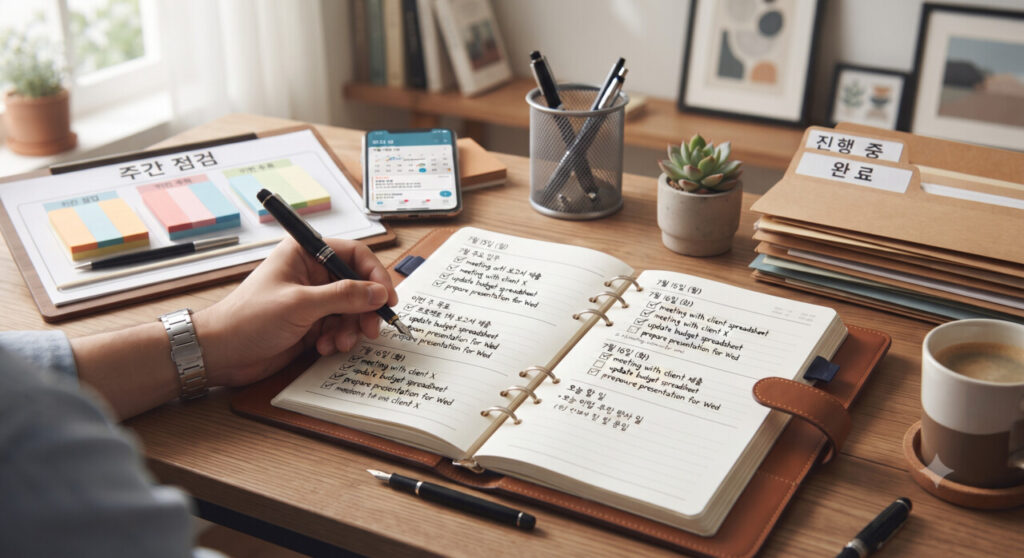 주간 점검
진행 중
완료
7월 15일 (월)
7월 주요 업무
meeting 보고서 제출
meeting with client X
update budget spreadsheet
prepare presentation for Wed
이번 주 목표
프로젝트 1차 보고서 제출
update budget spreadsheet
prepare presentation for Wed
7월 16일 (화)
meeting with client X
update budget spreadsheet
prepare presentation for Wed
client X
7월 15일 (월)
7월 16일 (화)
meeting with client spreadsheet
meeting with client X
update budget spreadsheet
prepare presentation for Wed
7월 16일 (화)
meeting with client 제출
update budget spreadsheet
prepare presentation for Wed
오늘 할 일